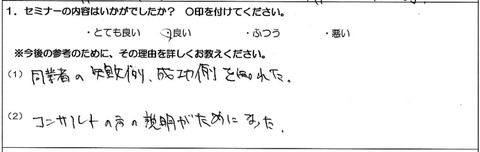 1．セミナーの内容はいかがでしたか？　○印を付けてください。
・とても良い　・良い　・ふつう　・悪い
※今後の参考のために、その理由を詳しくお教えください。
(1) 同業者の失敗例、成功例を知れた。
(2) コンサルトの方の説明がためになった。